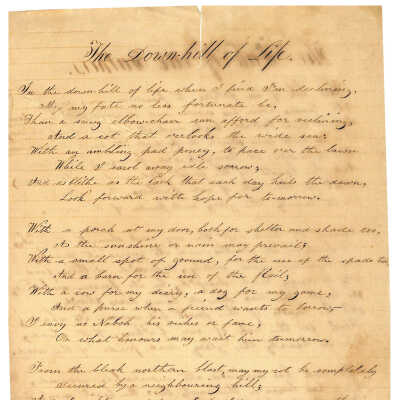 The Down-hill of Life.
In the down-hill of life when I find I'm declining,
May my fate no less fortunate be,
Than a snug elbow-chair can afford for reclining,
And a cot that o'erlooks the wide sea;
With an ambling pad poney, to pace o'er the lawn
While I carol away idle sorrow;
And as blithe as the lark that each day hails the dawn,
Look forward with hope for tomorrow.
With a porch at my door, both for shelter and shade too,
As the sunshine or rain may prevail;
With a small spot of ground, for the use of the spade too,
And a barn for the use of the flail;
With a cow for my dairy, a dog for my game,
And a purse when a friend wants to borrow
I envy no Nabob his riches or fame,
Or what honours may wait him tomorrow.
From the bleak northern blast, may my cot be completely
Secured by a neighbouring hill;